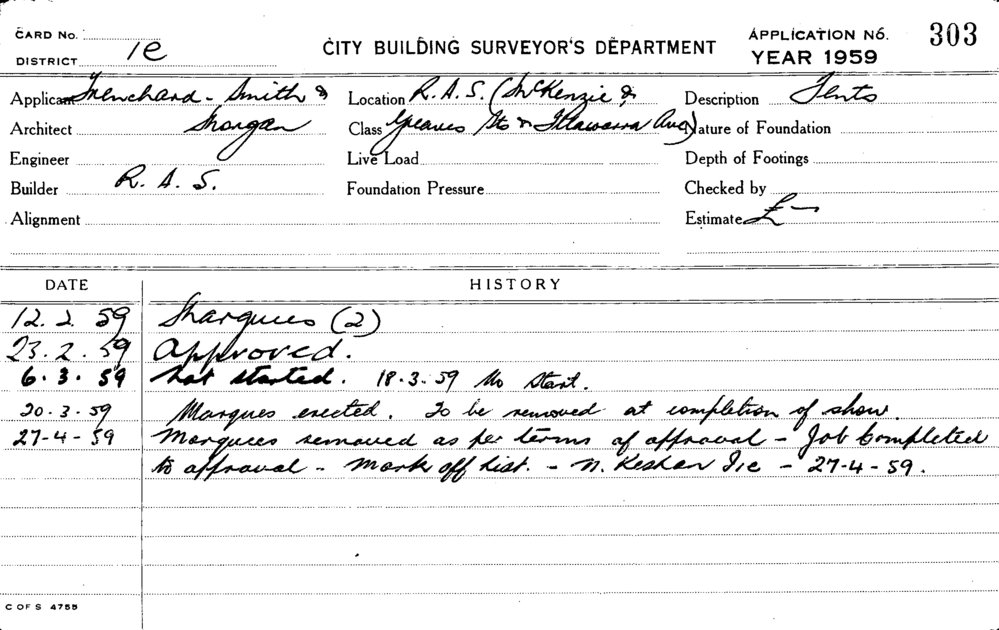 CARD No.
DISTRICT 1e
CITY BUILDING SURVEYOR'S DEPARTMENT
APPLICATION No. 303
YEAR 1959
Applicant Trenchard-Smith &
Architect Morgan
Engineer
Builder R. A. S.
Alignment
Location R.A.S. (McKenzie &
Class Greaves Sts & Illawarra Ave)
Live Load
Foundation Pressure
Description Tents
Nature of Foundation
Depth of Footings
Checked by
Estimate £ —
DATE HISTORY
12. 2. 59 Marquees (2)
23. 2. 59 Approved.
6. 3. 59 Not started. 18.3.59 No start.
20-3-59 Marques erected. To be removed at completion of show.
27-4-59 Marquees removed as per terms of approval - Job Completed
to approval - Mark off list. - N. 1/e - 27-4-59.
C OF S 4755